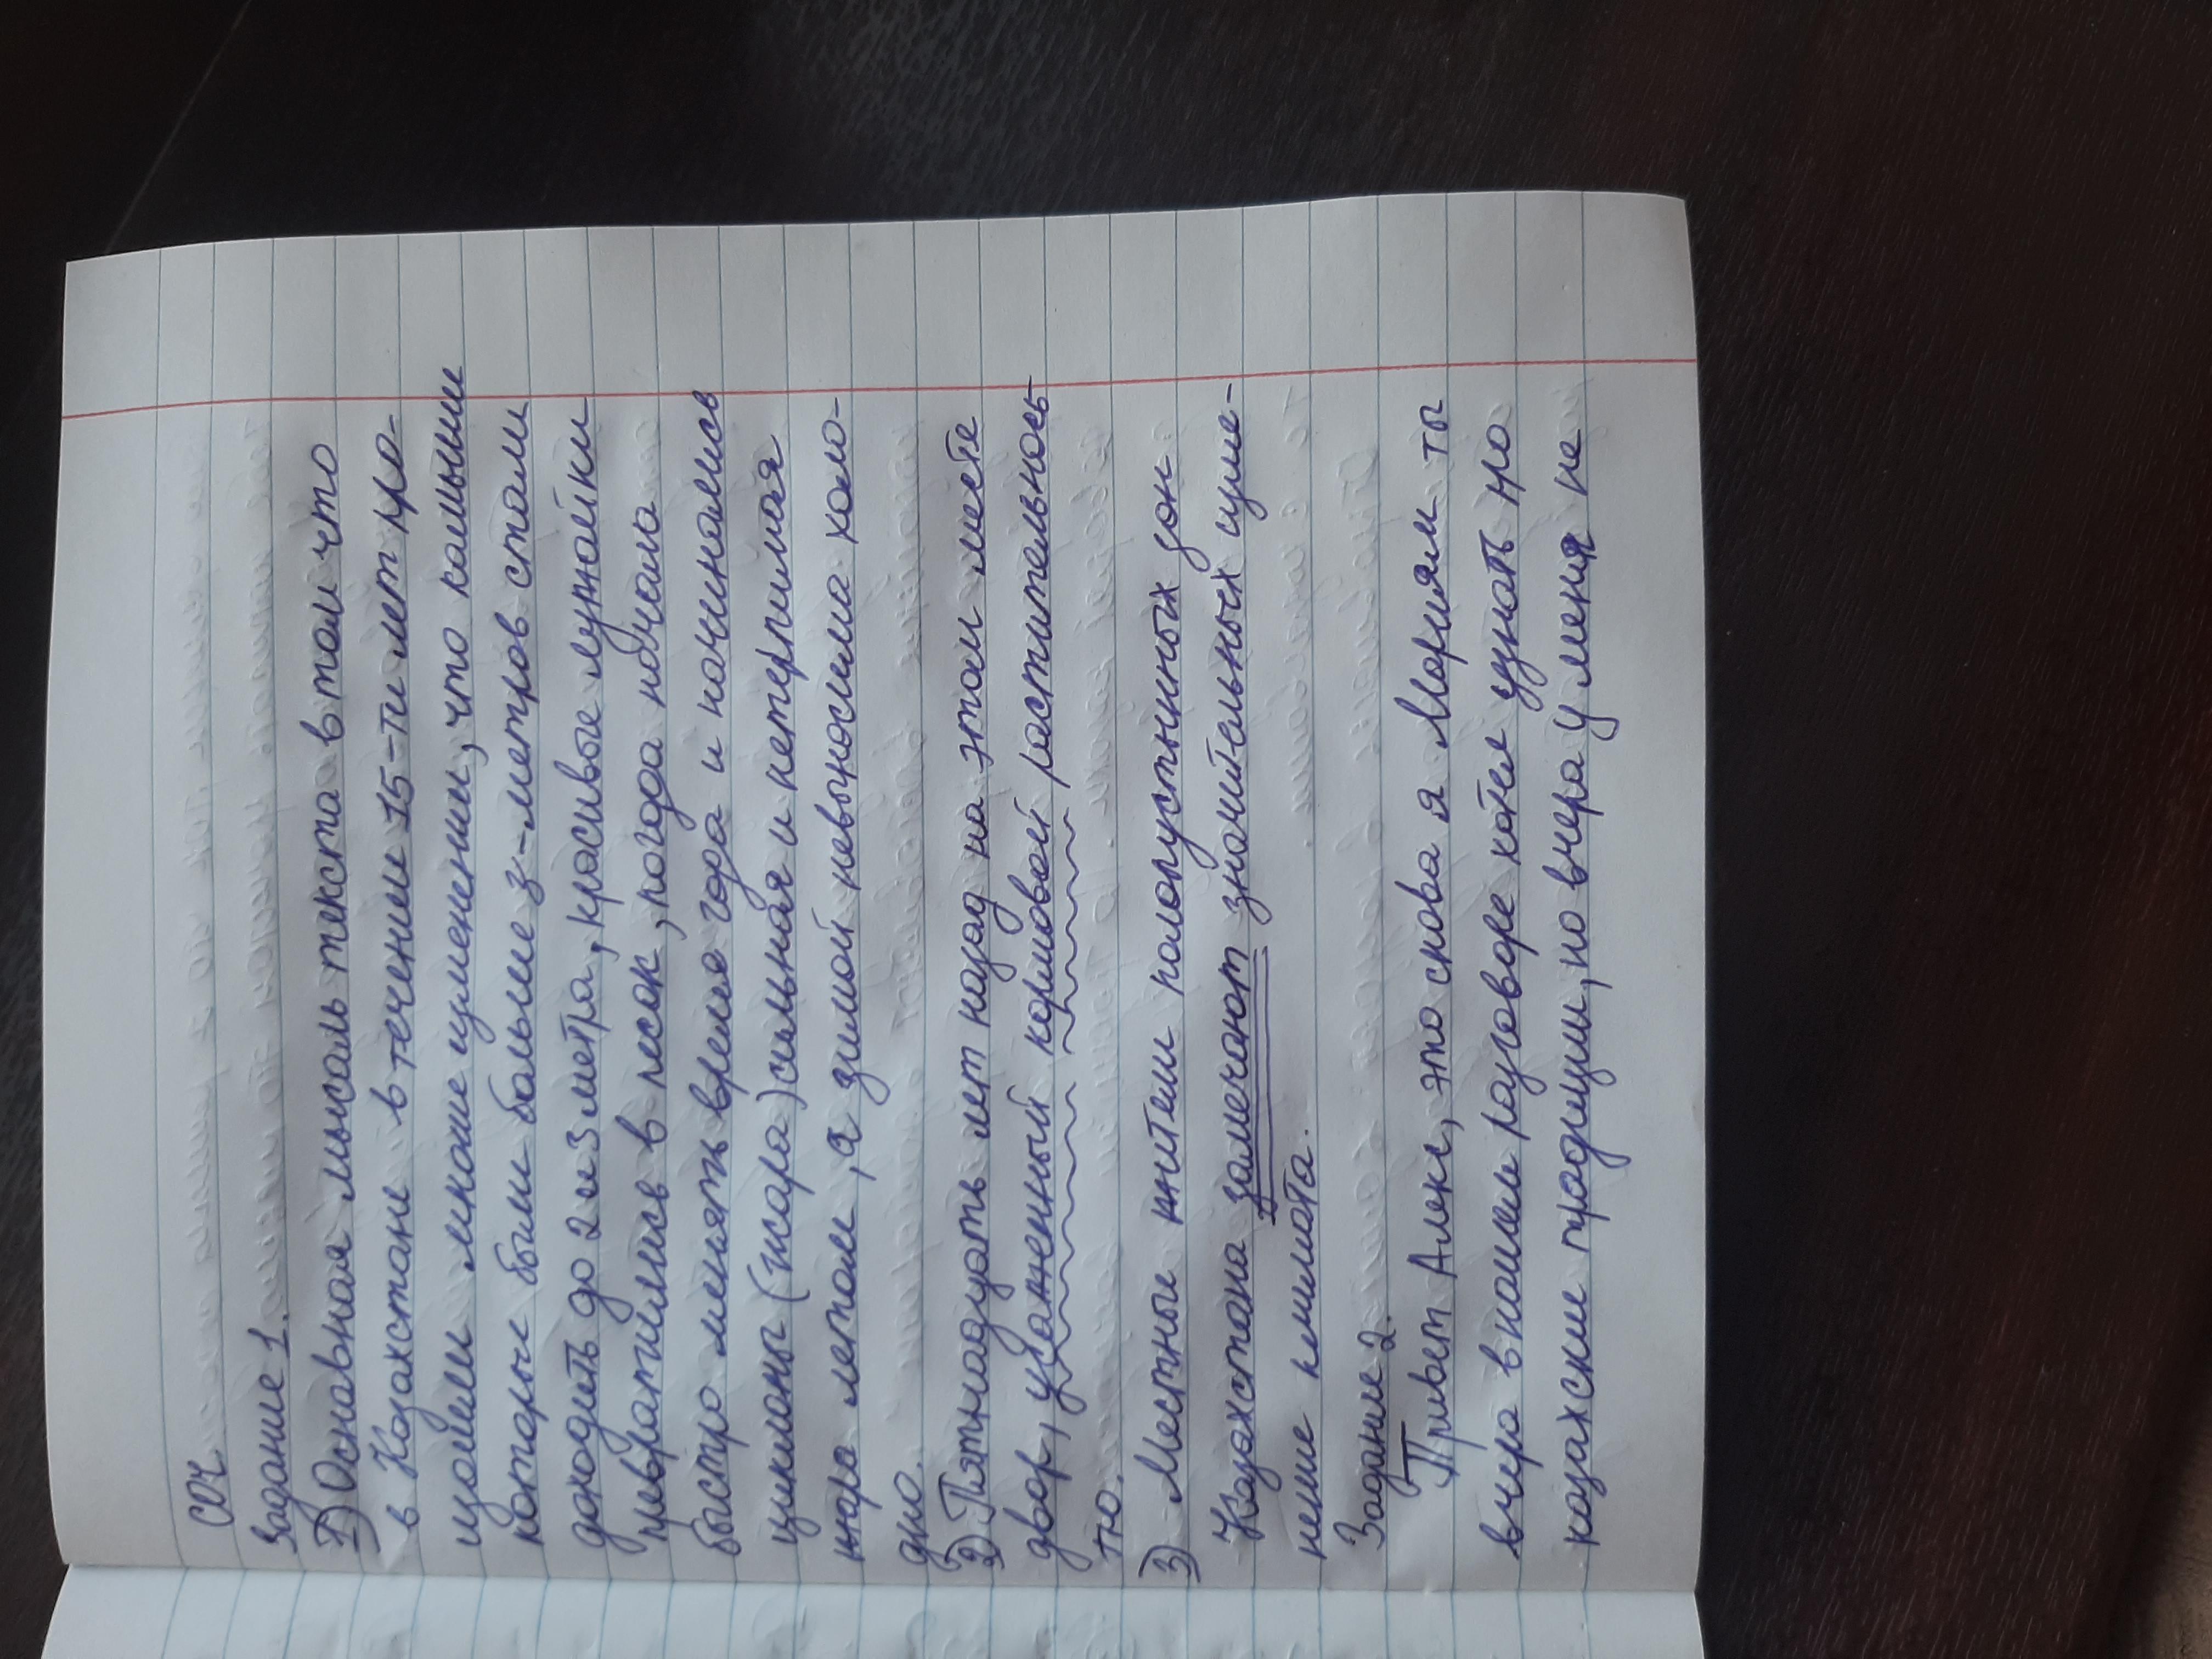 СОЧ
Задание 1.
1) Основная мысль текста в том что
в Казахстане в течении 15-ти лет про-
изошли многие изменении, что камыши
которые были больше 3-метров стали
доходить до 2 и 3 метра, красивые лужайки
превратились в песок, погода начала
быстро менять время года и начинались
циклоны (жара) сильная и нетерпимая
жара летом, а зимой невыносима холо-
дно.
2) Пятнадцать лет назад на этом месте
двор, усаженный кормовой растительнось-
тю.
3) Местные жители полопустынных зон
Казахстана замечают значительных изме-
нение климата.
Задание 2.
Привет Алекс, это снова я Мариям ты
вчера в нашем разговоре хотел узнать про
казахские традиции, но вчера у меня не